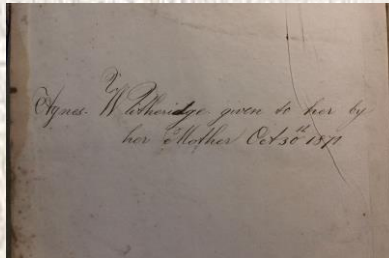 Agnes. W Witheridge given to her by
her Mother Oct 30th 1871